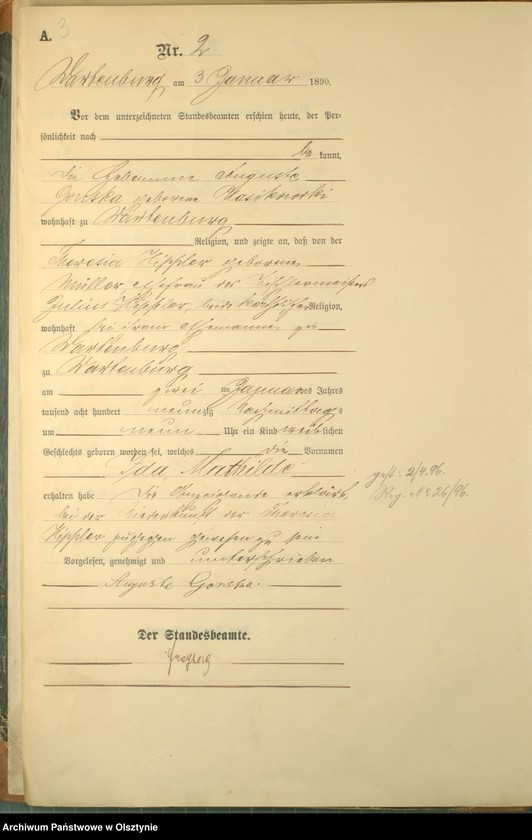 A. 3
Nr. 2
Wartenburg am 3 Januar 1890.
Vor dem unterzeichneten Standesbeamten erschien heute, der Per-
sönlichkeit nach
be kannt,
die Hebamme Auguste
geborene
wohnhaft zu Wartenburg
Religion, und zeigte an, daß von der
Theresia Hippler geborenen
Müller, Ehefrau des Tischlermeisters
Julius Hippler, beide katholischer Religion,
wohnhaft bei ihrem Ehemanne zu
Wartenburg
zu Wartenburg
am zwei ten Januar des Jahres
tausend acht hundert neunzig Nachmittags
um neun Uhr ein Kind weiblichen
Geschlechts geboren worden sei, welches die Vornamen
Ida Mathilde
erhalten habe Die Anzeigende erklärte,
bei der Niederkunft der Theresia
Hippler zugegen gewesen zu sein
Vorgelesen, genehmigt und unterschrieben
Auguste
Der Standesbeamte.
gest. 2/4.96.
Reg. No 26/96.
Archiwum Państwowe w Olsztynie